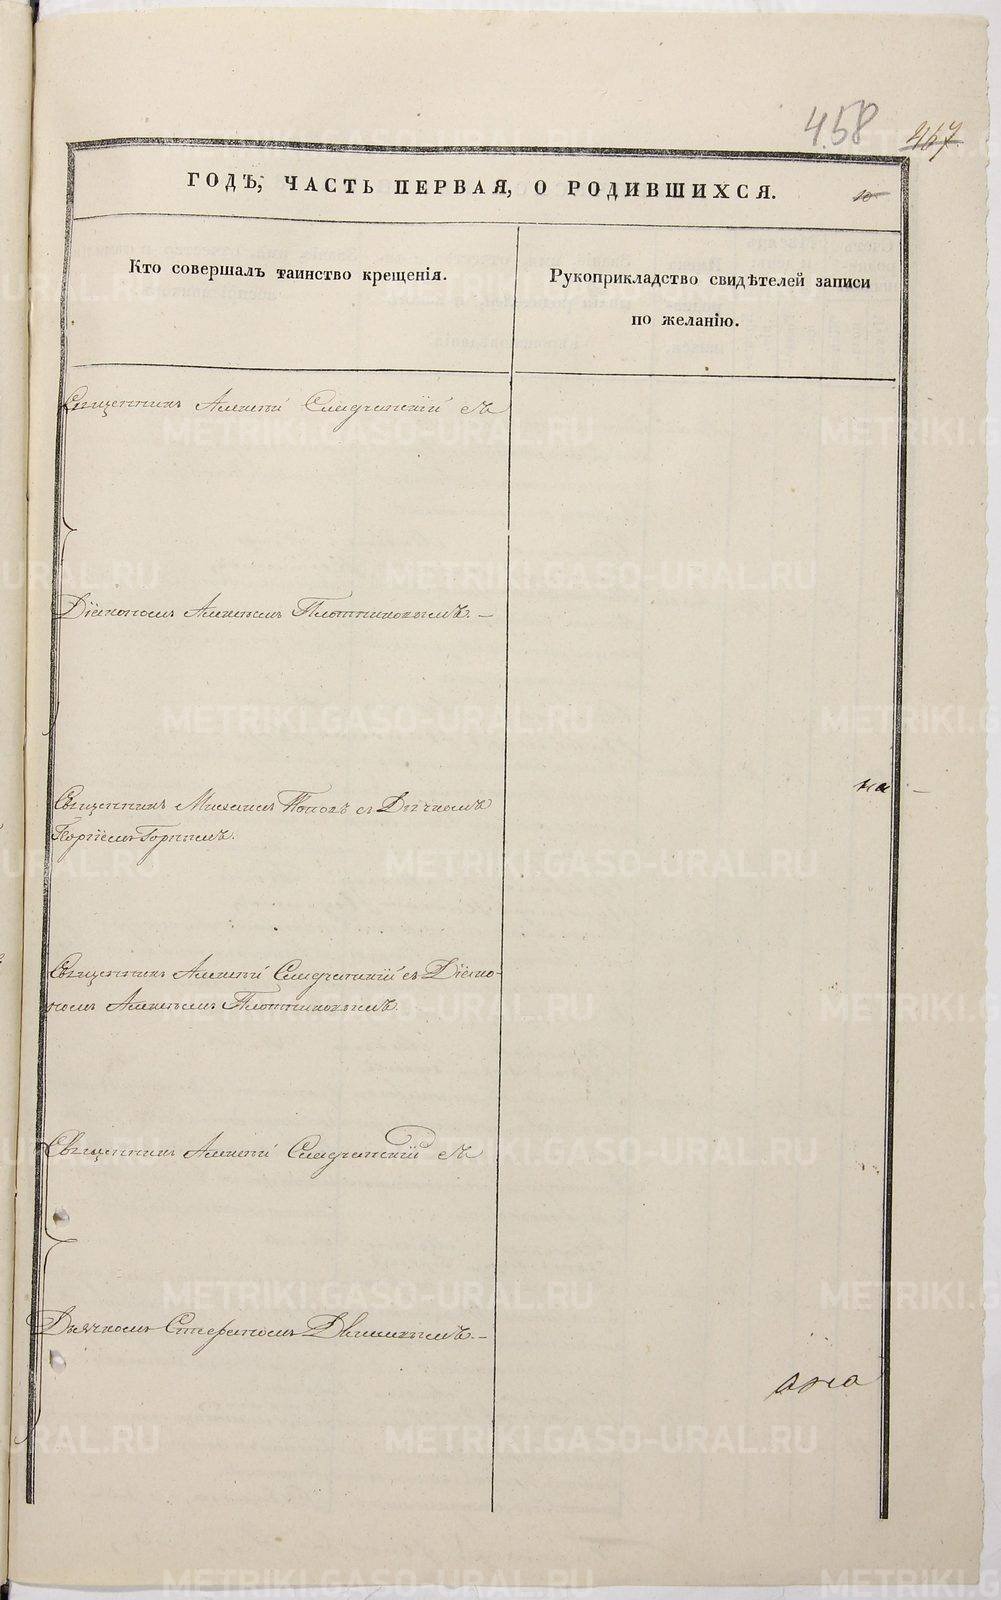 458
467
ГОДЪ, ЧАСТЬ ПЕРВАЯ, О РОДИВШИХСЯ.
10
Кто совершалъ таинство крещенія.
Рукоприкладство свидѣтелей записи
по желанію.
Священникъ Алексѣй Словчанскій съ
Діакономъ Алексѣемъ Плотниковымъ. —
Священникъ Михаилъ Поповъ съ Дьячкомъ
Георгіемъ Горнымъ.
на —
Священникъ Алексѣй съ Діако-
номъ Алексѣемъ Плотниковымъ.
Священникъ Алексѣй съ
Дьячкомъ Стефаномъ —
METRIKI.GASO-URAL.RU